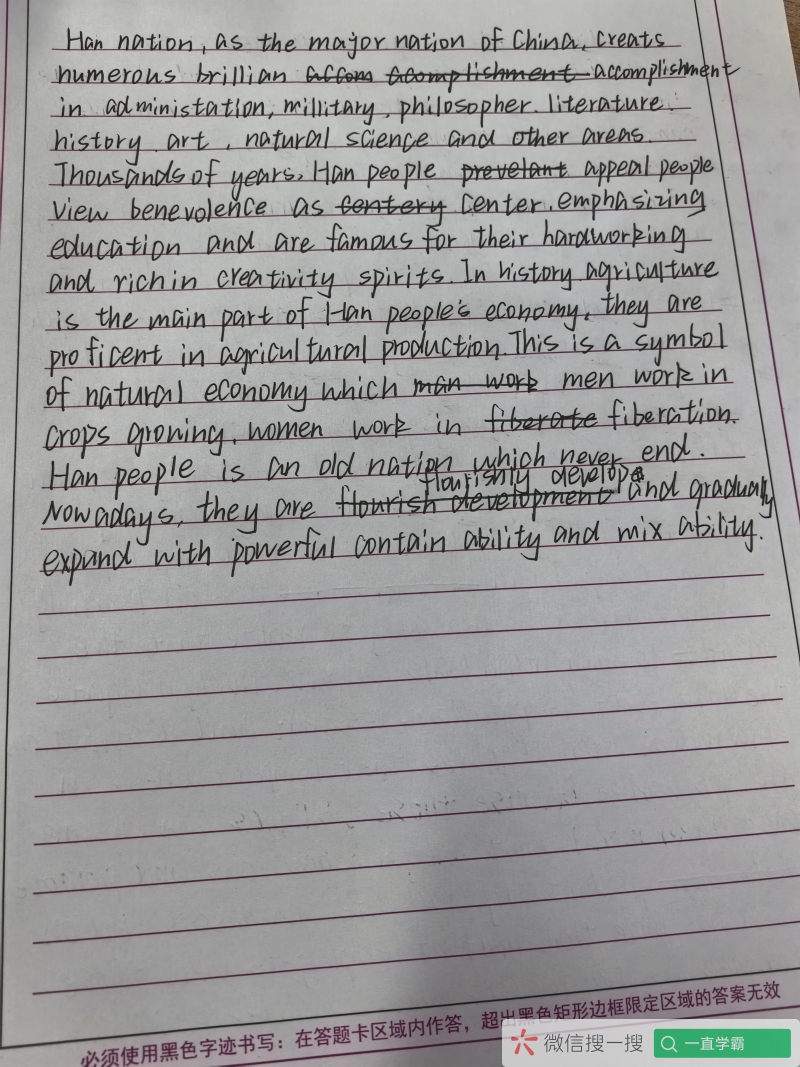 Han nation, as the major nation of China, creats
numerous brillian accom acomplishment accomplishment
in administation, millitary, philosopher. literature.
history, art, natural science and other areas.
Thousands of years, Han people prevelant appeal people
view benevolence as centery center, emphasizing
education and are famous for their hardworking
and rich in creativity spirits. In history agriculture
is the main part of Han people's economy, they are
proficent in agricultural production. This is a symbol
of natural economy which man work men work in
crops growing, women work in fiberate fiberation.
Han people is an old nation which never end.
flourishly develope
Nowadays, they are flourish development and gradually
expand with powerful contain ability and mix ability.
必须使用黑色字迹书写：在答题卡区域内作答，超出黑色矩形边框限定区域的答案无效
微信搜一搜 一直学霸